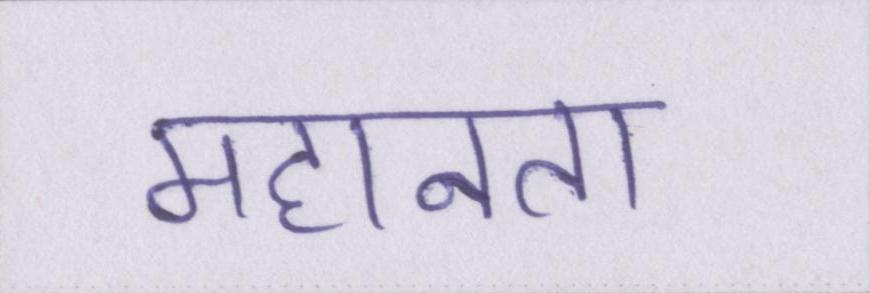 महानता